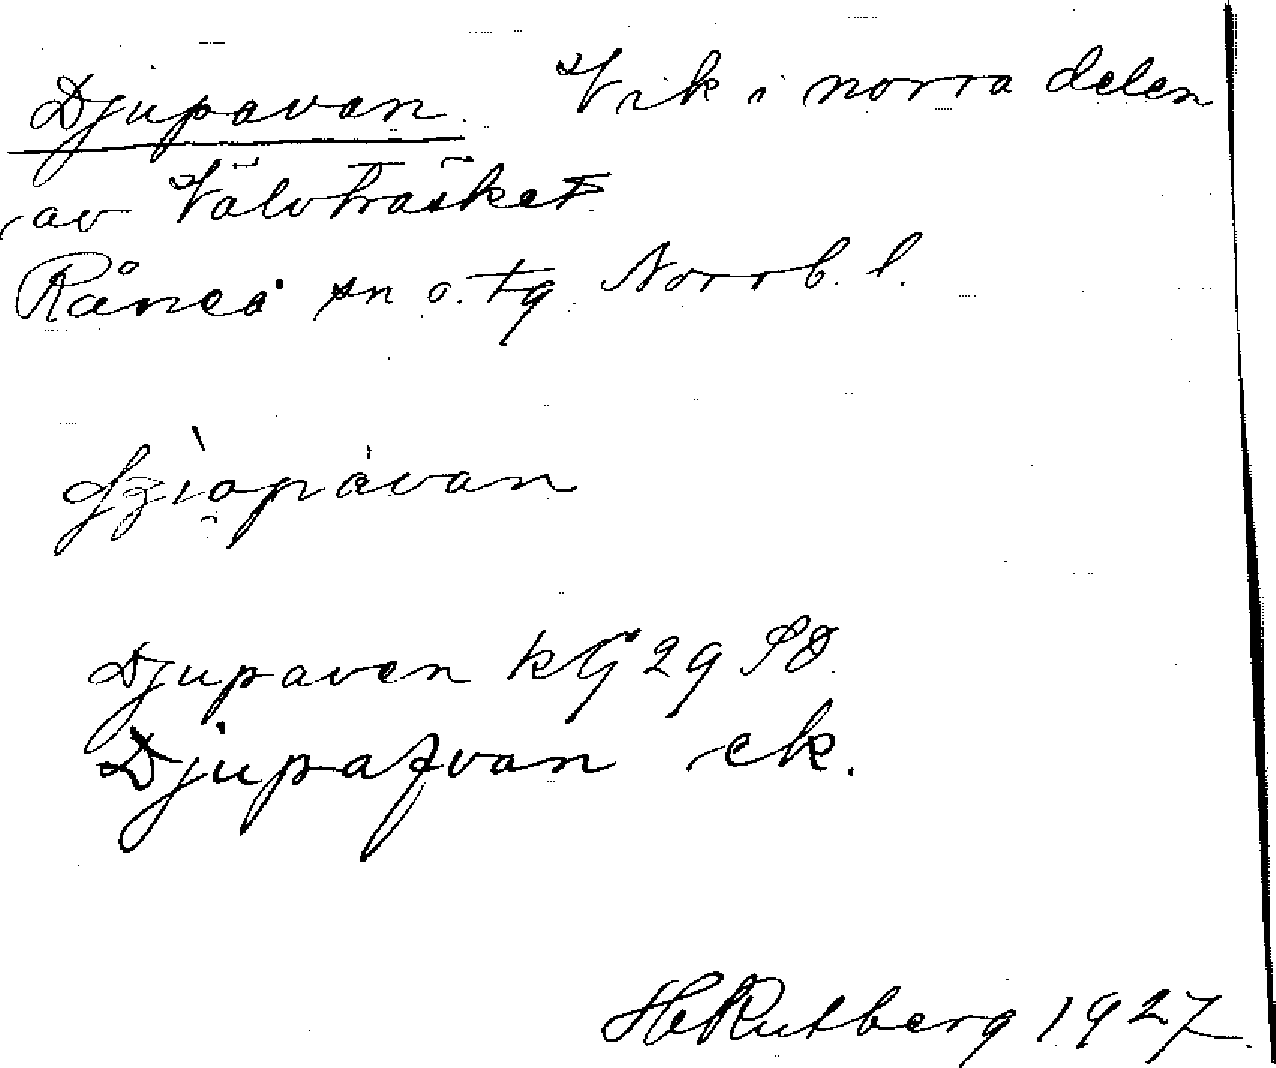 Djupavan. Vik i norra delen
av Välvträsket
Råneå sn o. tg Norrb. l.
Djupaven kG 29 SO.
Djupafvan ek.
HRutberg 1927.